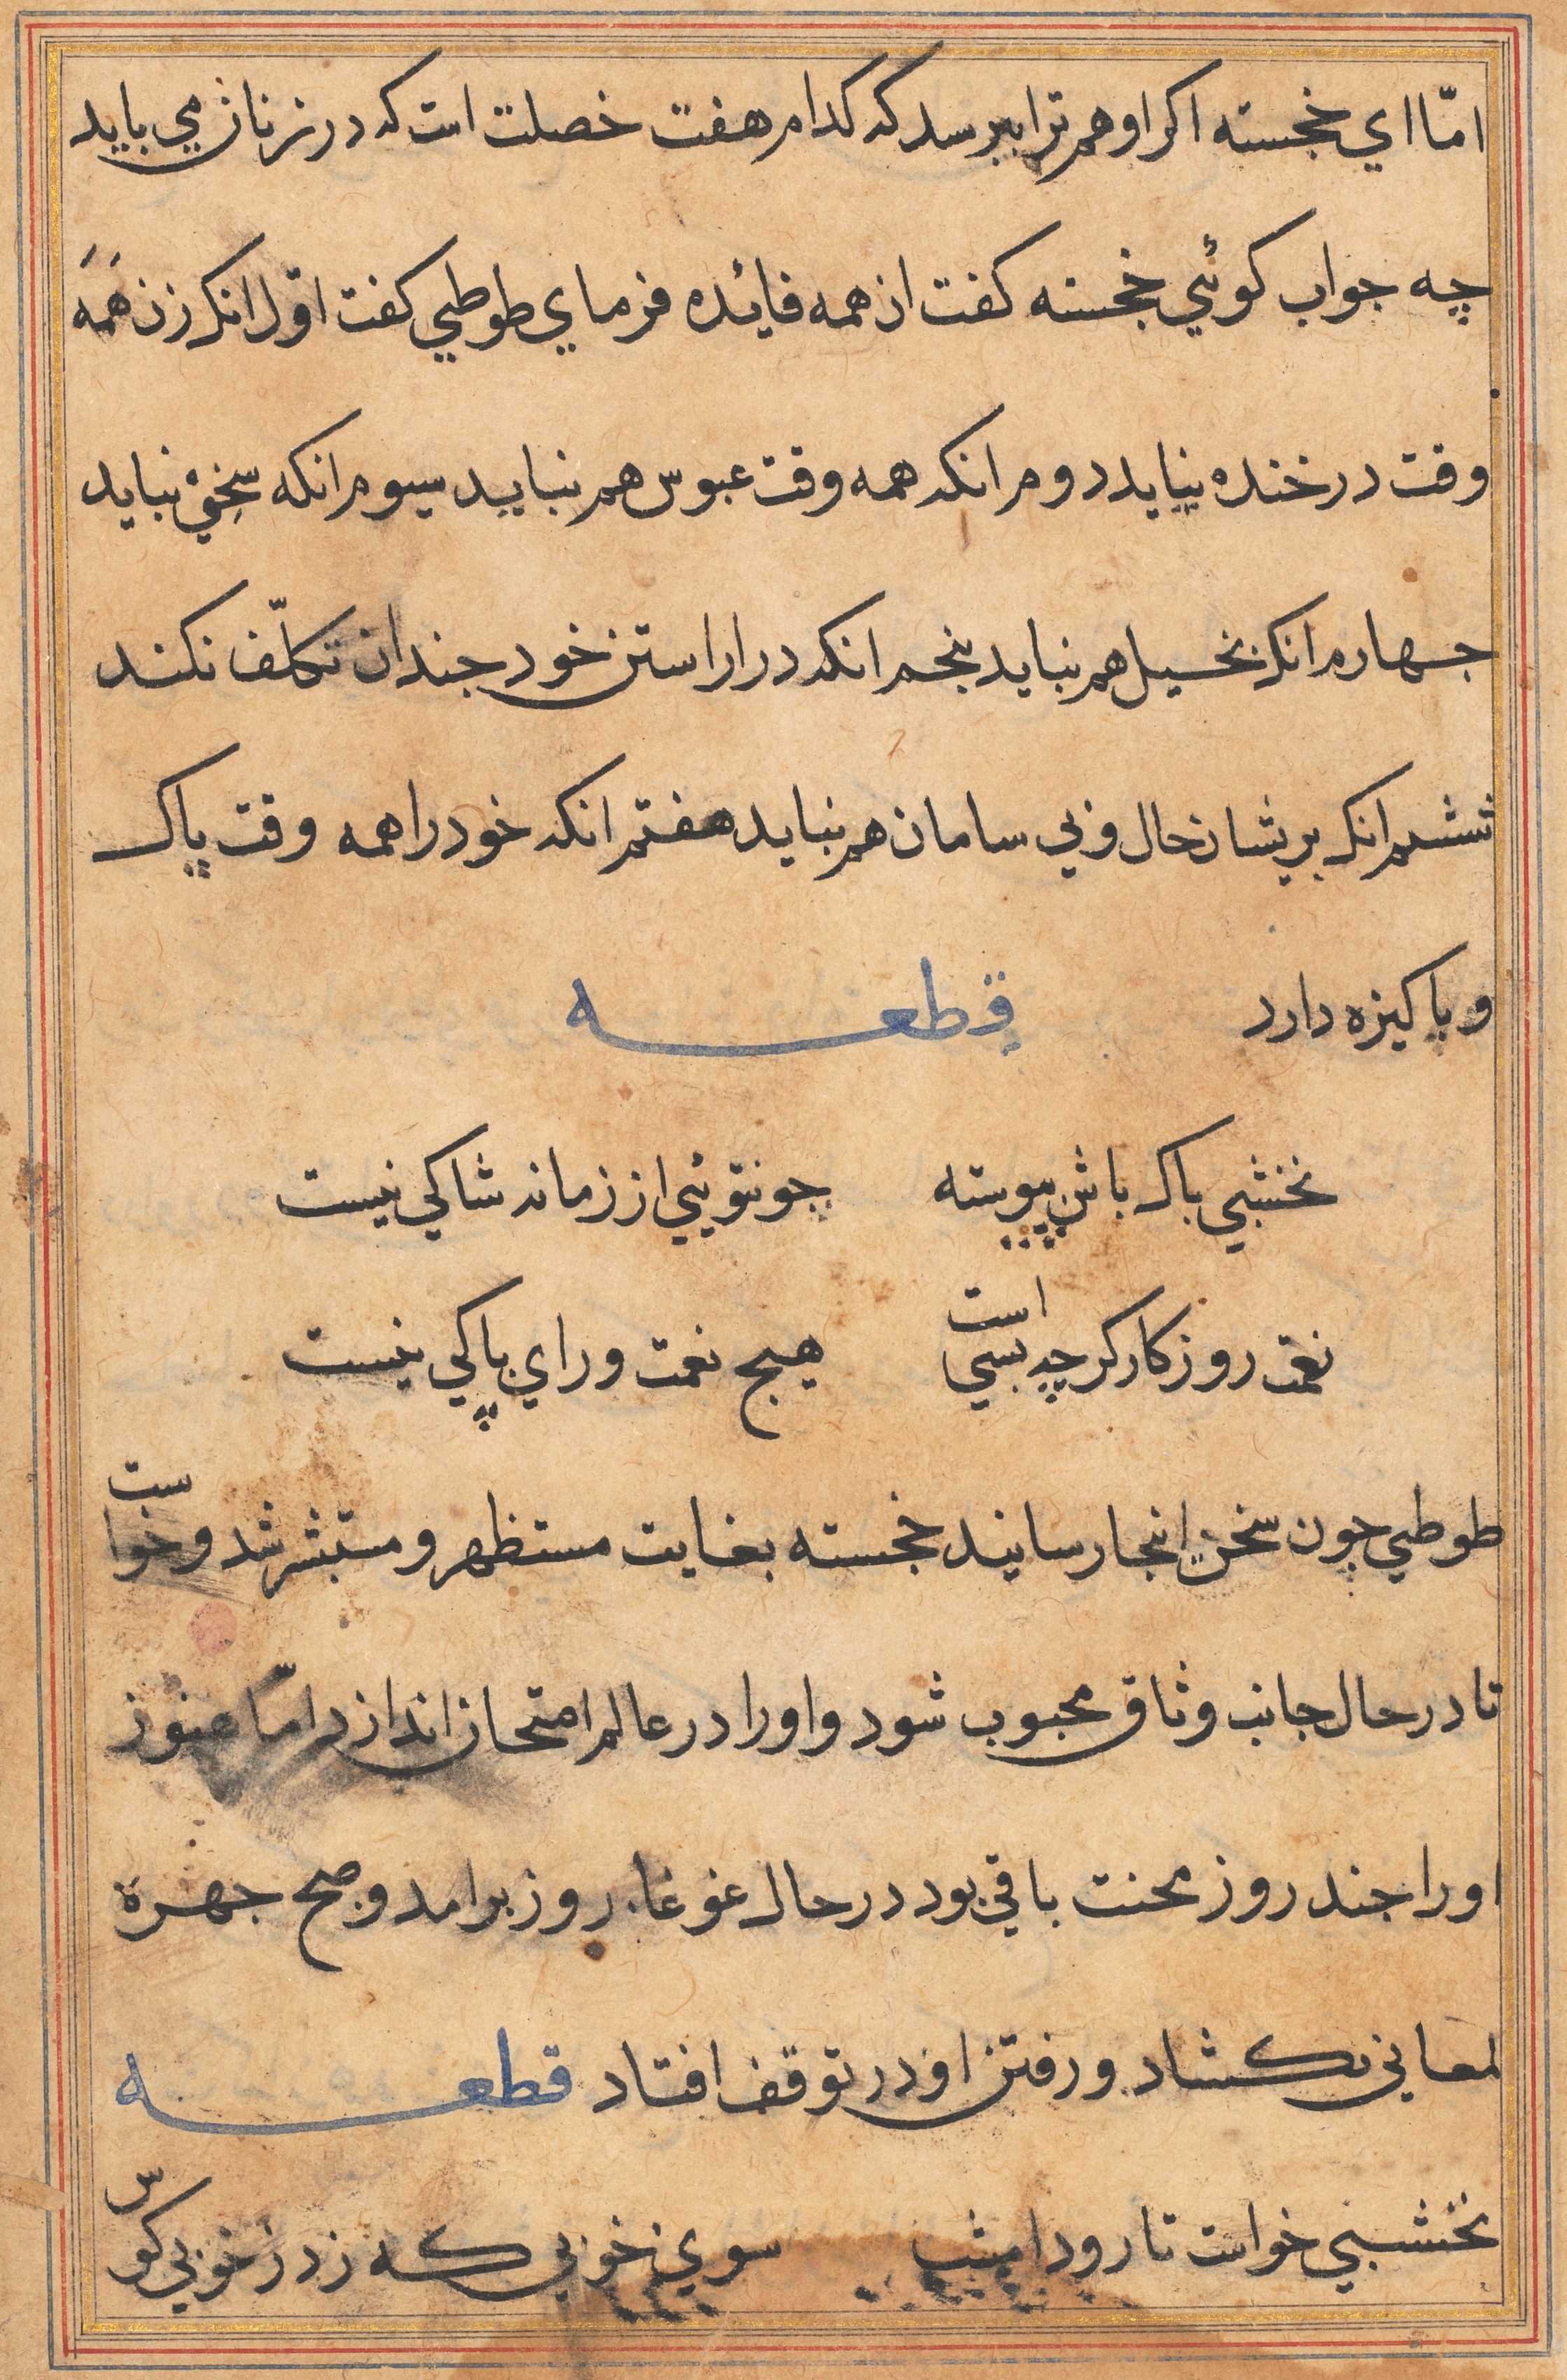 امّا اي خجسته اكر او هم ترا ببرسد كه كدام هفت خصلت است كه در زنان مي بايد
چه جواب كوئي خجسته كفت ان همه فايده فرماي طوطي كفت اوّل انكه زن همه
وقت در خنده نبايد دوم انكه همه وقت عبوس هم نبايد سيوم انكه سخي نبايد
جهارم انكه بخيل هم نبايد بنجم انكه در اراستن خود جندان تكلّف نكند
ششم انكه بريشان حال و بي سامان هم نبايد هفتم انكه خود را همه وقت پاك
و باكيزه دارد قطعه
نخشبي باك باش پيوسته جو نتوئي از زمانه شاكي نيست
نعمت روزكار كرچه بسي است هيج نعمت وراي پاكي نيست
طوطي چون سخن اينجا رسانيد خجسته بغايت مستظهر و مستبشر شد و خواست
تا در حال جانب وثاق محبوب شود و او را در عالم امتحان اندازد امّا هنوز
او را جند روز محنت باقي بود در حال غوغاء روز برامد و صبح جهرة
لمعاني بكشاد و رفتن او در توقف افتاد قطعه
نخشبي خواست تا رود امشب سوي خوبي كه زد ز خوبي كوس